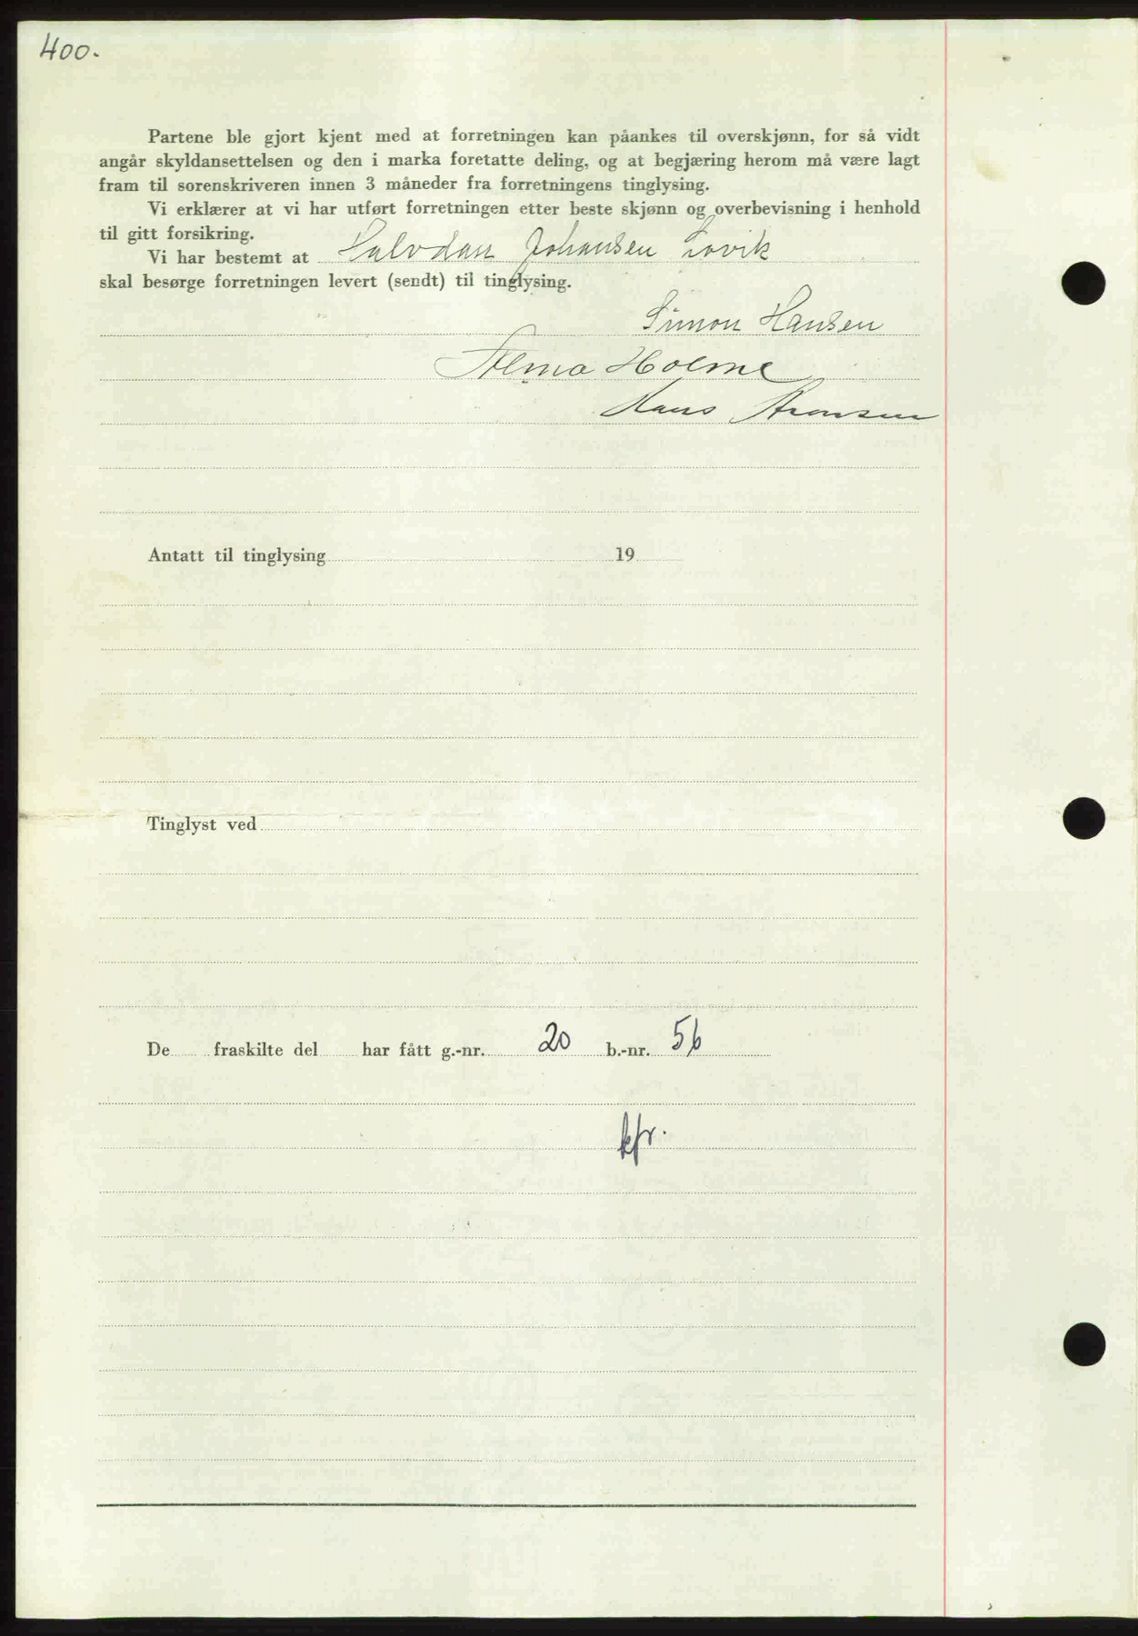 400.
Partene ble gjort kjent med at forretningen kan påankes til overskjønn, for så vidt
angår skyldansettelsen og den i marka foretatte deling, og at begjæring herom må være lagt
fram til sorenskriveren innen 3 måneder fra forretningens tinglysing.
Vi erklærer at vi har utført forretningen etter beste skjønn og overbevisning i henhold
til gitt forsikring.
Vi har bestemt at Halvdan Johansen Lovik
skal besørge forretningen levert (sendt) til tinglysing.
Simon Hansen
Alma Holme
Hans Aronsen
Antatt til tinglysing 19
Tinglyst ved
De fraskilte del har fått g.-nr. 20 b.-nr. 56
kfr.